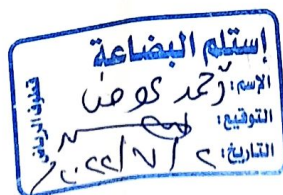 إستلم البضاعة
الاسم: أحمد عوض
التوقيع:
التاريخ: ٢٠٢٢/٧/٢